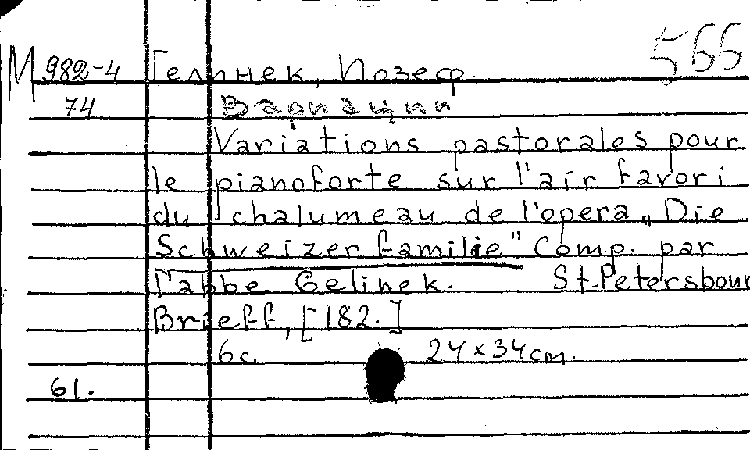 566
М 982-4 Гелинек, Йозеф.
74 Вариации
Variations pastorales pour
le pianoforte sur l'air favori
du chalumeau de l'opera „Die
Schweizer familie" Comp. par
l'abbe Gelinek. St.Petersbour
Brieff, [182.]
6с. 24x34cm.
61.